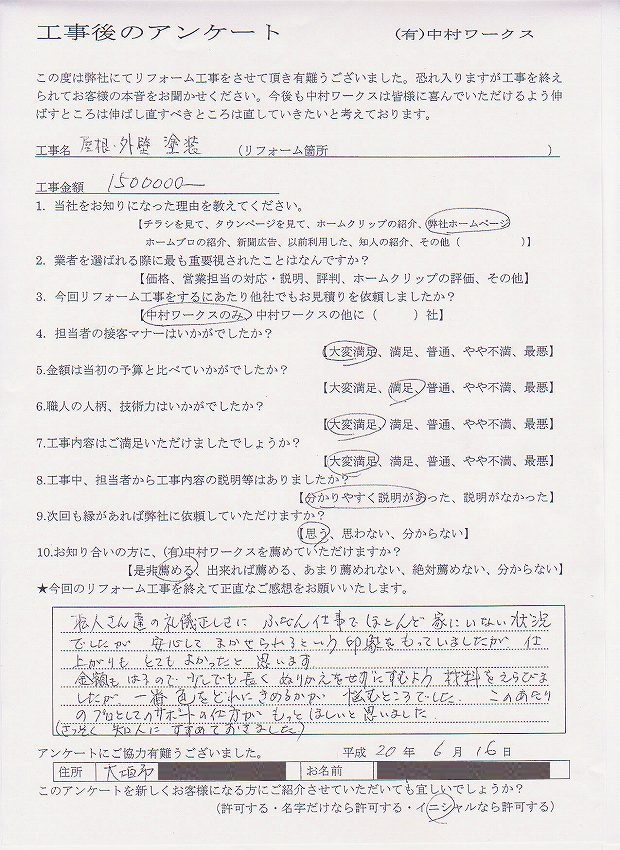 工事後のアンケート　(有)中村ワークス
この度は弊社にてリフォーム工事をさせて頂き有難うございました。恐れ入りますが工事を終え
られてお客様の本音をお聞かせください。今後も中村ワークスは皆様に喜んでいただけるよう伸
ばすところは伸ばし直すべきところは直していきたいと考えております。
工事名　屋根・外壁 塗装　(リフォーム箇所　)
工事金額　1500000―
1. 当社をお知りになった理由を教えてください。
【チラシを見て、タウンページを見て、ホームクリップの紹介、弊社ホームページ
ホームプロの紹介、新聞広告、以前利用した、知人の紹介、その他（　）】
2. 業者を選ばれる際に最も重要視されたことはなんですか？
【価格、営業担当の対応・説明、評判、ホームクリップの評価、その他】
3. 今回リフォーム工事をするにあたり他社でもお見積りを依頼しましたか？
【中村ワークスのみ、中村ワークスの他に（　）社】
4. 担当者の接客マナーはいかがでしたか？
【大変満足、満足、普通、やや不満、最悪】
5.金額は当初の予算と比べていかがでしたか？
【大変満足、満足、普通、やや不満、最悪】
6.職人の人柄、技術力はいかがでしたか？
【大変満足、満足、普通、やや不満、最悪】
7.工事内容はご満足いただけましたでしょうか？
【大変満足、満足、普通、やや不満、最悪】
8.工事中、担当者から工事内容の説明等はありましたか？
【分かりやすく説明があった、説明がなかった】
9.次回も縁があれば弊社に依頼していただけますか？
【思う、思わない、分からない】
10.お知り合いの方に、(有)中村ワークスを薦めていただけますか？
【是非薦める、出来れば薦める、あまり薦めれない、絶対薦めない、分からない】
★今回のリフォーム工事を終えて正直なご感想をお願いいたします。
職人さん達の礼儀正しさに ふだん仕事で ほとんど 家にいない 状況
でしたが 安心して まかせられるという 印象をもっていましたが 仕
上がりも とても よかったと 思います
金額も はるので 少しでも長く ぬりかえをせずにすむよう 材料をえらびま
したが 一番 色をどれにきめるかが 悩むところでした このあたり
のプロとしてのサポートの仕方が もっとほしいと思いました
(さっそく 知人に すすめておきました)
アンケートにご協力有難うございました。　平成 20 年 6 月 16 日
住所　大垣市　お名前
このアンケートを新しくお客様になる方にご紹介させていただいても宜しいでしょうか？
（許可する・名字だけなら許可する・イニシャルなら許可する）